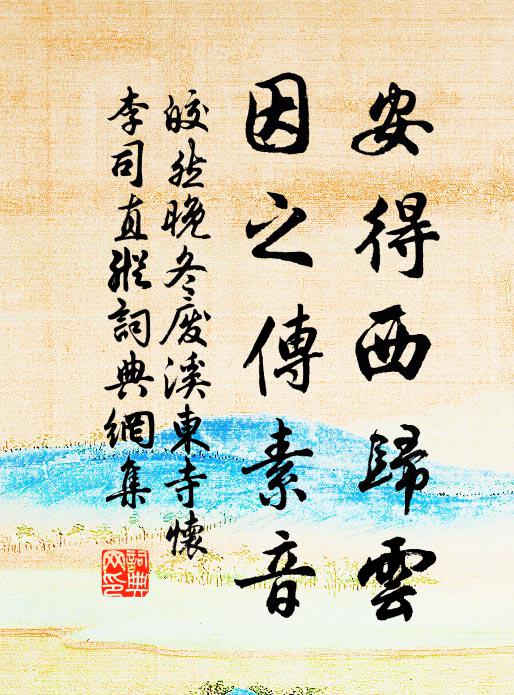 安得西歸雲
因之傳素音
皎然晚冬廢溪東寺懷
李司直縱詞典網集
詞典網印